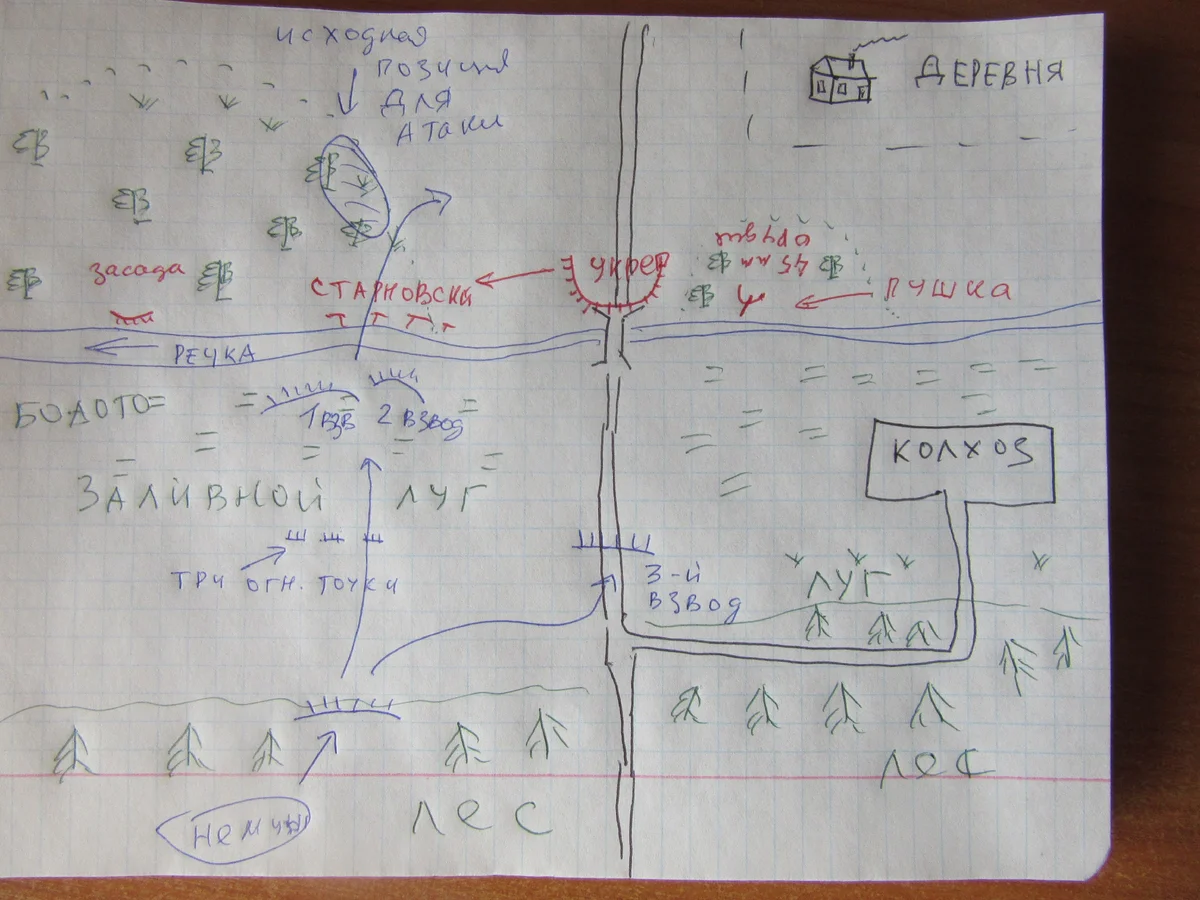 исходная
позиция
для
атаки
ДЕРЕВНЯ
засада
СТАРНОВСКИ
укреп
орудие
45 мм
ПУШКА
РЕЧКА
БОЛОТО
1 ВЗВ
2 ВЗВОД
КОЛХОЗ
ЗАЛИВНОЙ ЛУГ
ТРИ ОГН. ТОЧКИ
3-й
ВЗВОД
ЛУГ
ЛЕС
немцы
ЛЕС